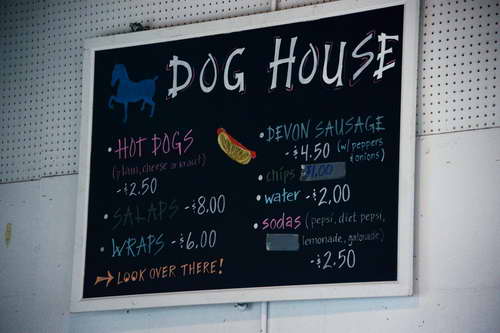 DOG HOUSE
• HOT DOGS
(plain, cheese or kraut)
- $2.50
• SALADS - $8.00
• WRAPS - $6.00
LOOK OVER THERE!
• DEVON SAUSAGE
- $4.50 (w/ peppers & onions)
• chips $1.00
• water - $2.00
• sodas (pepsi, diet pepsi,
lemonade, gatorade)
- $2.50